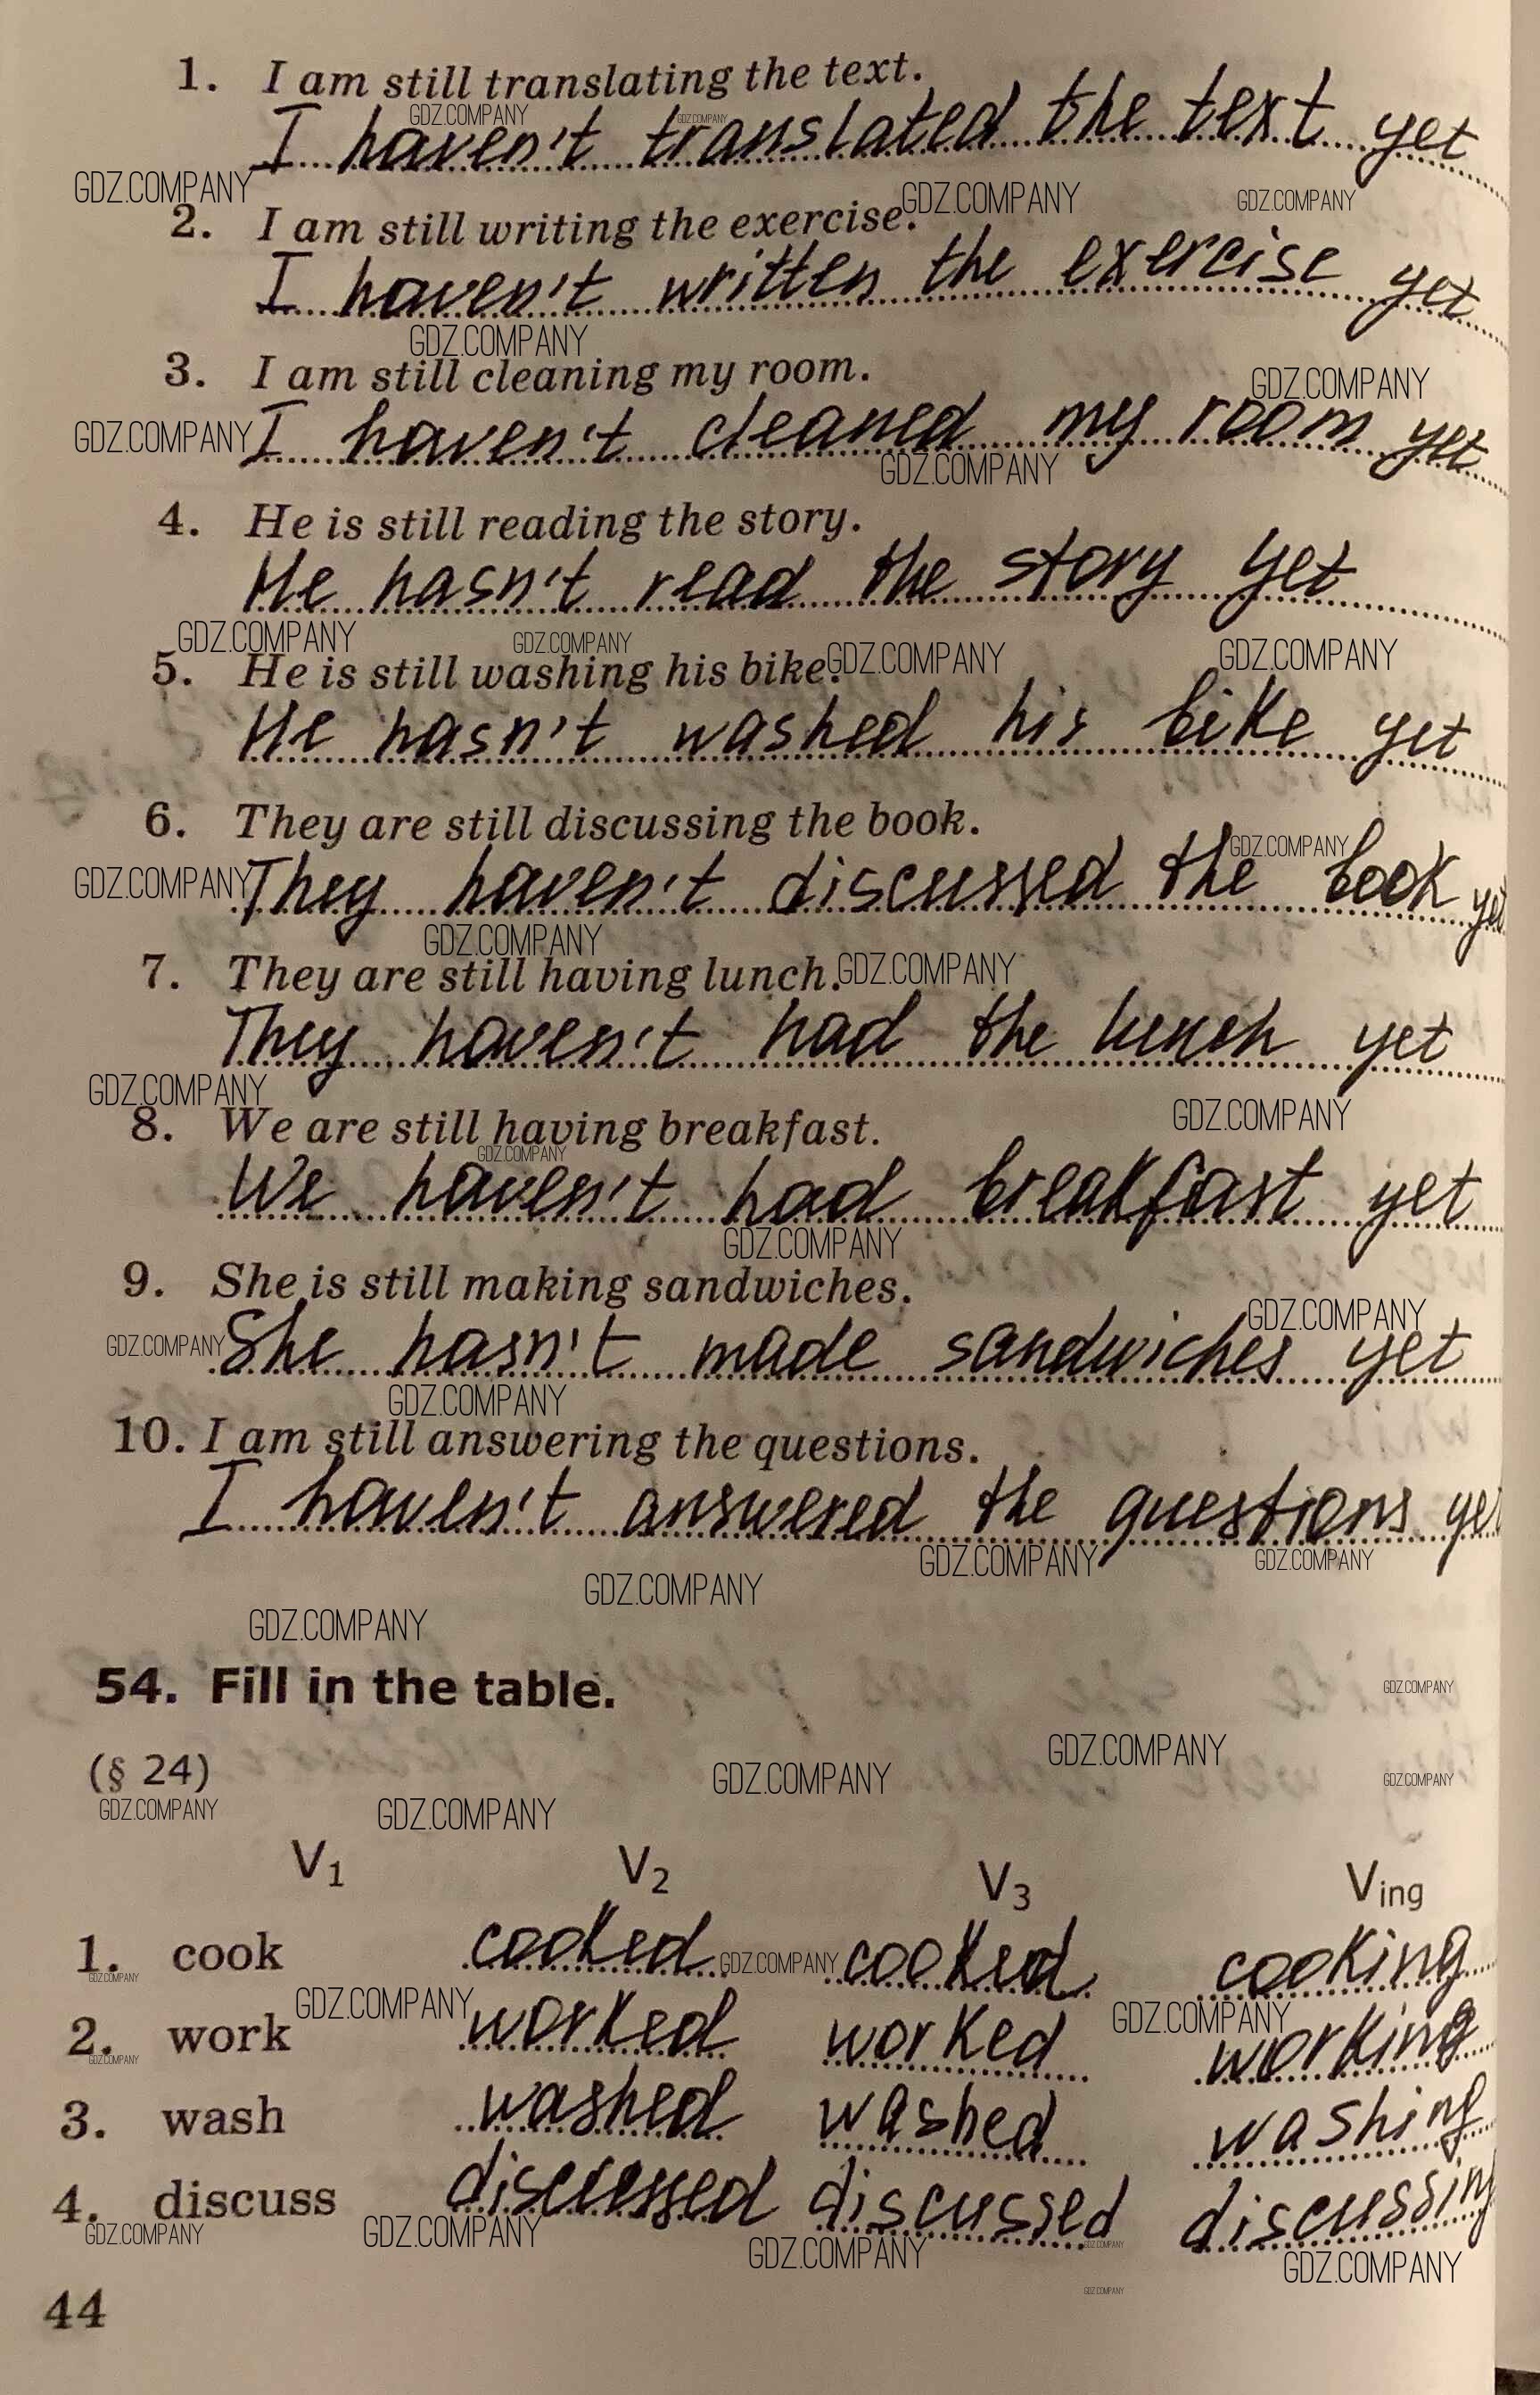 1. I am still translating the text.
I haven't translated the text yet
2. I am still writing the exercise.
I haven't written the exercise yet
3. I am still cleaning my room.
I haven't cleaned my room yet
4. He is still reading the story.
He hasn't read the story yet
5. He is still washing his bike.
He hasn't washed his bike yet
6. They are still discussing the book.
They haven't discussed the book yet
7. They are still having lunch.
They haven't had the lunch yet
8. We are still having breakfast.
We haven't had breakfast yet
9. She is still making sandwiches.
She hasn't made sandwiches yet
10. I am still answering the questions.
I haven't answered the questions yet
54. Fill in the table.
(§ 24)
V1 V2 V3 Ving
1. cook cooked cooked cooking
2. work worked worked working
3. wash washed washed washing
4. discuss discussed discussed discussing
44
GDZ.COMPANY